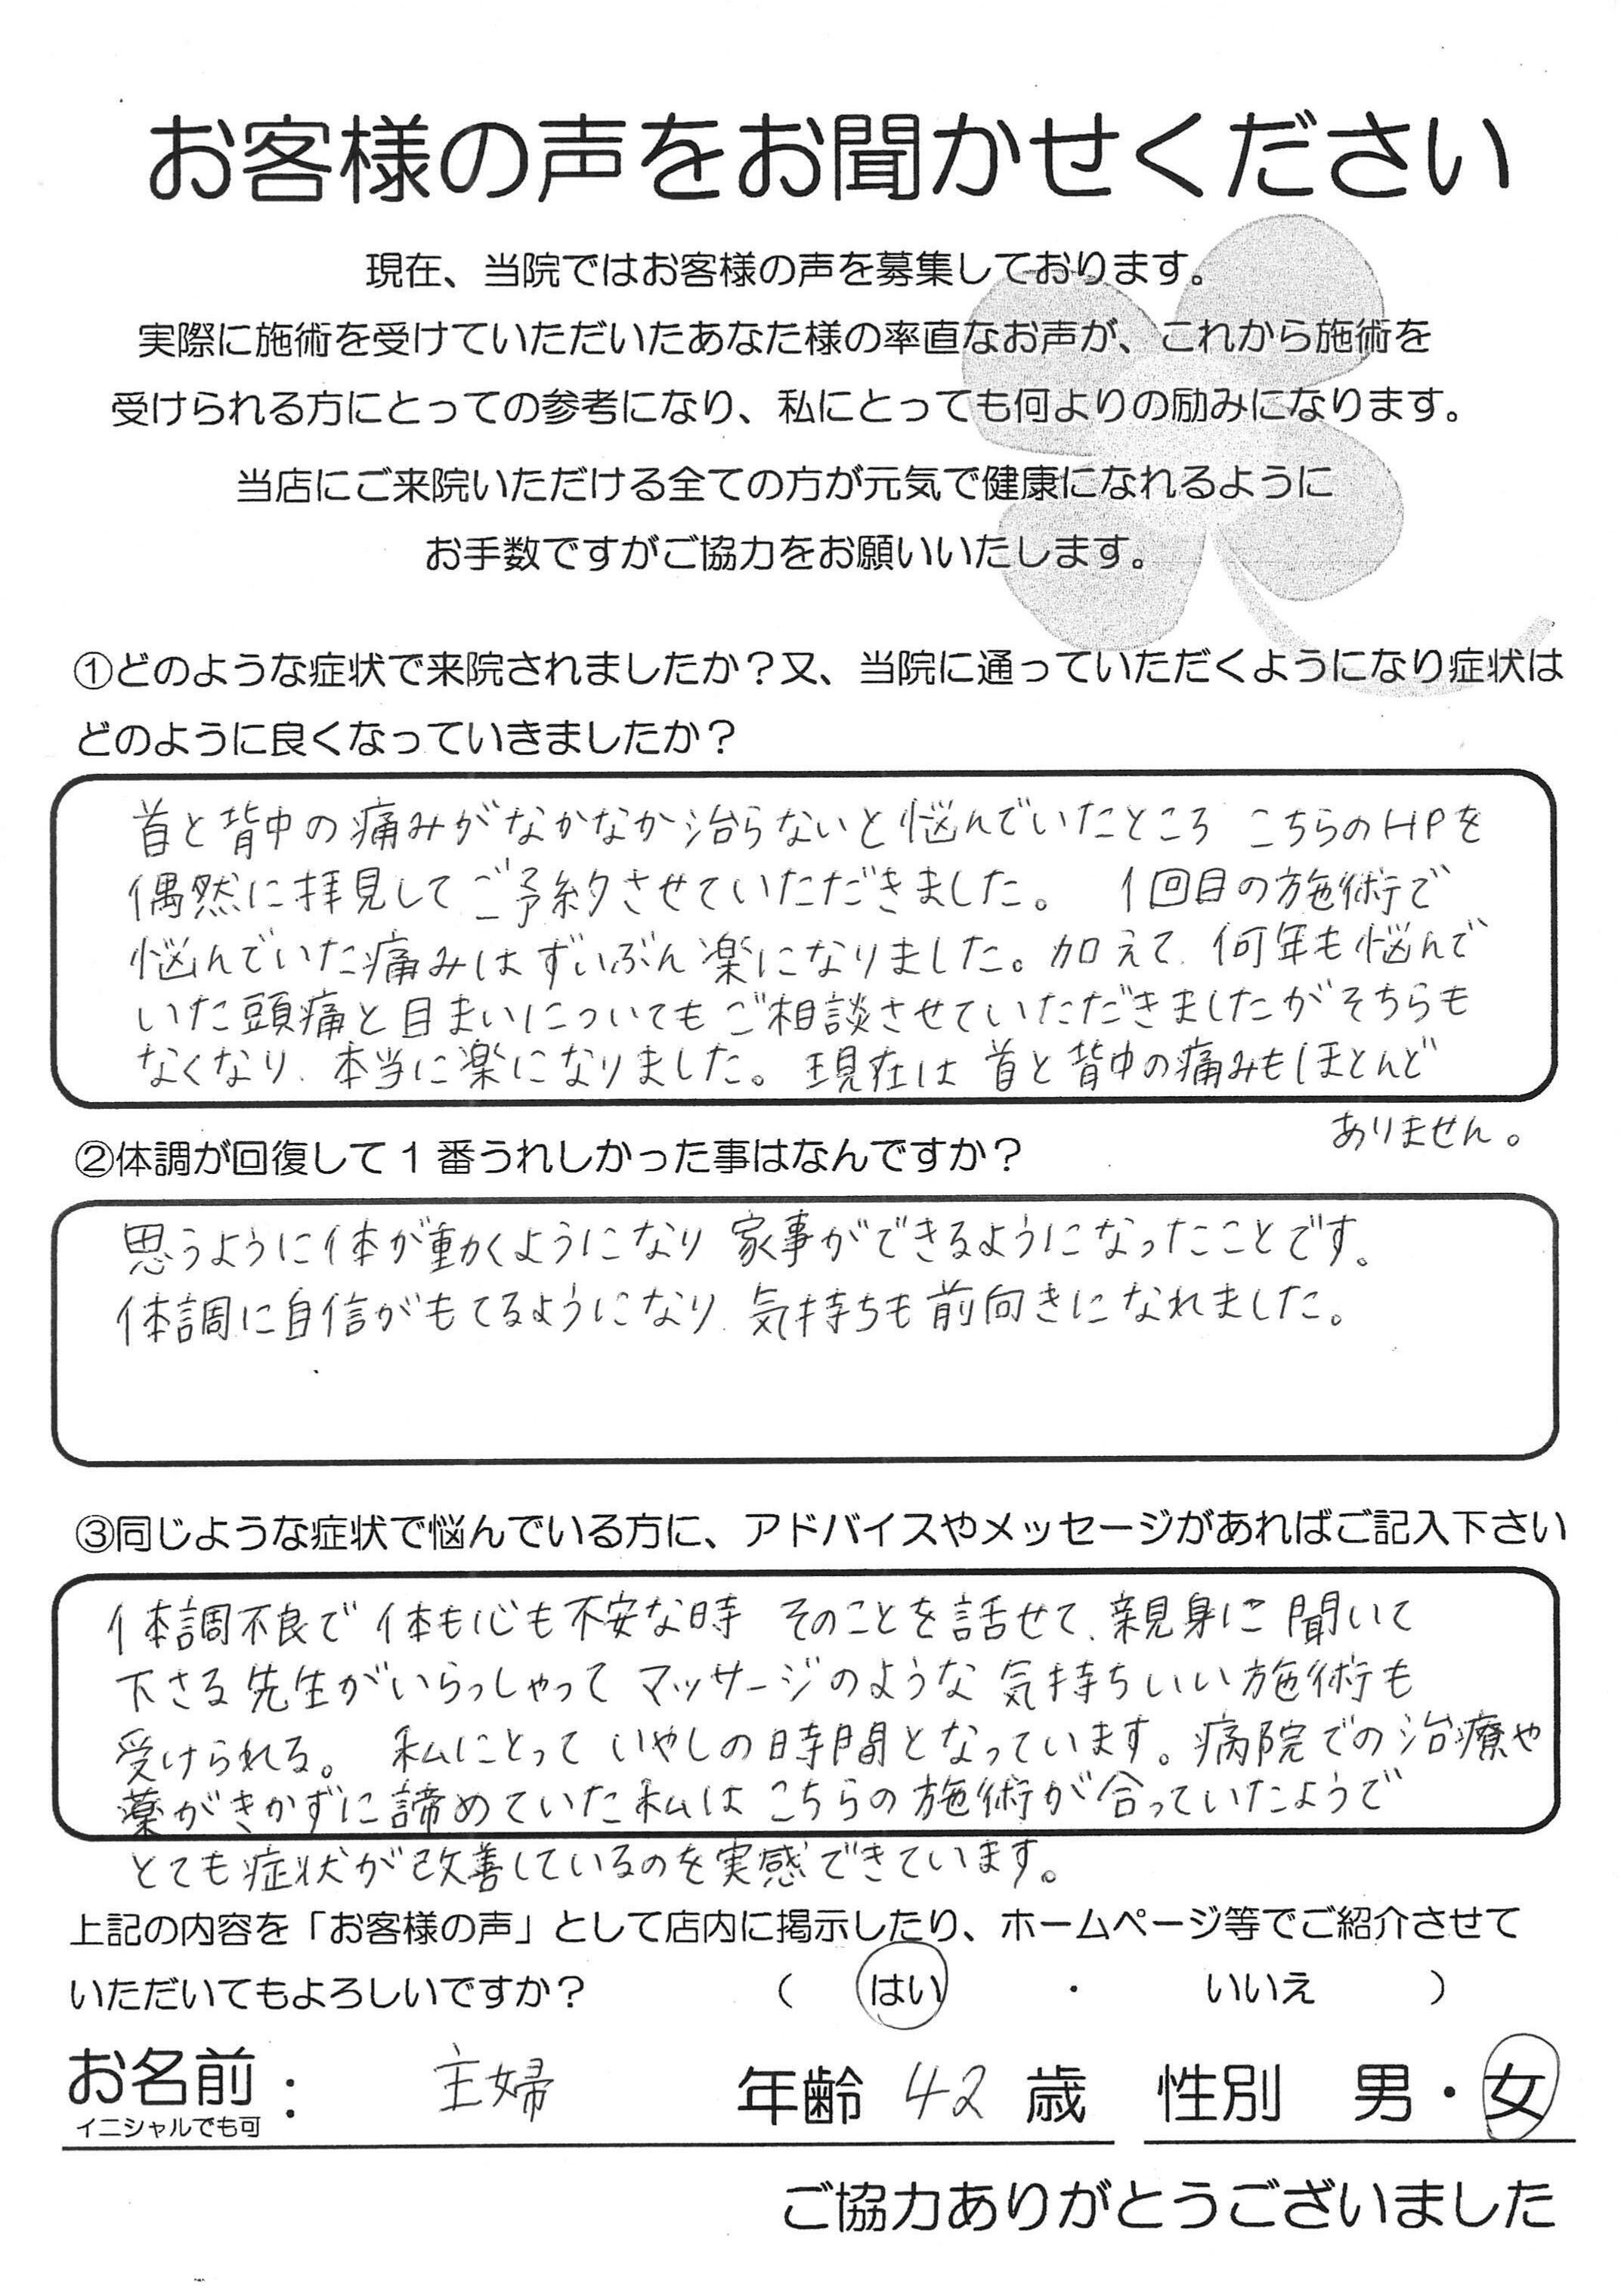 お客様の声をお聞かせください
現在、当院ではお客様の声を募集しております。
実際に施術を受けていただいたあなた様の率直なお声が、これから施術を
受けられる方にとっての参考になり、私にとっても何よりの励みになります。
当店にご来院いただける全ての方が元気で健康になれるように
お手数ですがご協力をお願いいたします。
①どのような症状で来院されましたか？又、当院に通っていただくようになり症状は
どのように良くなっていきましたか？
首と背中の痛みがなかなか治らないと悩んでいたところ こちらのHPを
偶然に拝見してご予約させていただきました。 1回目の施術で
悩んでいた痛みはずいぶん楽になりました。加えて、何年も悩んで
いた頭痛と目まいについてもご相談させていただきましたがそちらも
なくなり、本当に楽になりました。現在は首と背中の痛みもほとんど
ありません。
②体調が回復して1番うれしかった事はなんですか？
思うように体が動くようになり 家事ができるようになったことです。
体調に自信がもてるようになり、気持ちも前向きになれました。
③同じような症状で悩んでいる方に、アドバイスやメッセージがあればご記入下さい
体調不良で体も心も不安な時 そのことを話せて、親身に聞いて
下さる先生がいらっしゃって マッサージのような気持ちいい施術も
受けられる。 私にとって いやしの時間となっています。病院での治療や
薬がきかずに諦めていた私は こちらの施術が合っていたようで
とても症状が改善しているのを実感できています。
上記の内容を「お客様の声」として店内に掲示したり、ホームページ等でご紹介させて
いただいてもよろしいですか？ （ はい ・ いいえ ）
お名前： 主婦 年齢 42 歳 性別 男・女
イニシャルでも可
ご協力ありがとうございました